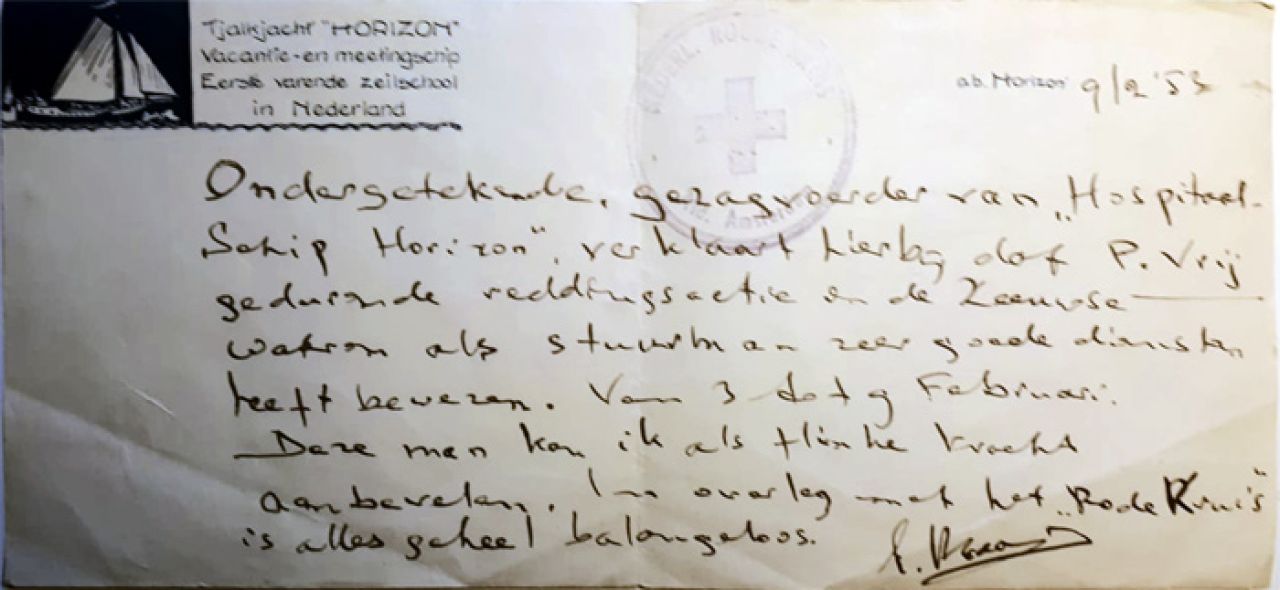 Tjalkjacht "HORIZON"
Vacantie-en meetingschip
Eerste varende zeilschool
in Nederland
NEDERL. ROODE KRUIS
a.b. Horizon 9/2 '53
Ondergetekende, gezagvoerder van „Hospitaal-
Schip Horizon", verklaart hierbij dat P. Vrij
gedurende reddingsactie in de Zeeuwse
wateren als stuurman zeer goede diensten
heeft bewezen. Van 3 tot 9 Februari.
Deze man kan ik als flinke kracht
aanbevelen. In overleg met het „Rode Kruis"
is alles geheel belangeloos.